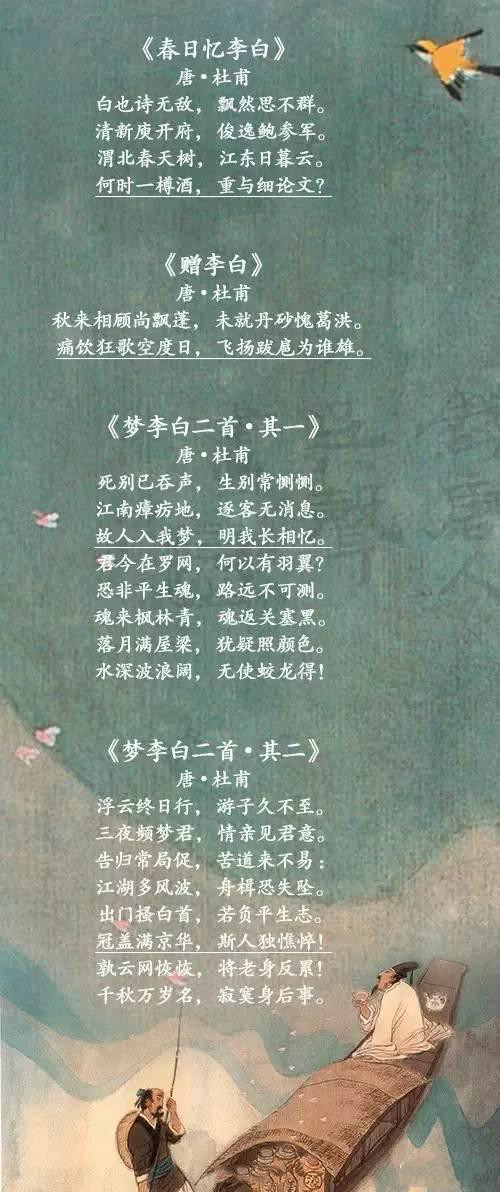 《春日忆李白》
唐·杜甫
白也诗无敌，飘然思不群。
清新庾开府，俊逸鲍参军。
渭北春天树，江东日暮云。
何时一樽酒，重与细论文？
《赠李白》
唐·杜甫
秋来相顾尚飘蓬，未就丹砂愧葛洪。
痛饮狂歌空度日，飞扬跋扈为谁雄。
《梦李白二首·其一》
唐·杜甫
死别已吞声，生别常恻恻。
江南瘴疠地，逐客无消息。
故人入我梦，明我长相忆。
君今在罗网，何以有羽翼？
恐非平生魂，路远不可测。
魂来枫林青，魂返关塞黑。
落月满屋梁，犹疑照颜色。
水深波浪阔，无使蛟龙得！
《梦李白二首·其二》
唐·杜甫
浮云终日行，游子久不至。
三夜频梦君，情亲见君意。
告归常局促，苦道来不易：
江湖多风波，舟楫恐失坠。
出门搔白首，若负平生志。
冠盖满京华，斯人独憔悴！
孰云网恢恢，将老身反累！
千秋万岁名，寂寞身后事。